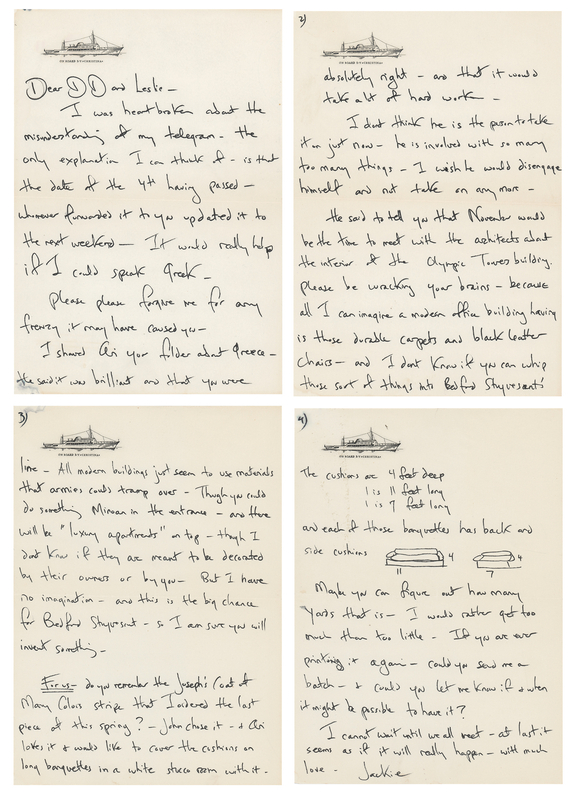 Dear DD and Leslie —
I was heartbroken about the
misunderstanding of my telegram — the
only explanation I can think of — is that
the date of the 4th having passed —
whoever forwarded it to you updated it to
the next weekend — It would really help
if I could speak Greek —
please please forgive me for any
frenzy it may have caused you —
I showed Ari your folder about Greece —
He said it was brilliant and that you were
2)
absolutely right — and that it would
take a lot of hard work —
I dont think he is the person to take
it on just now — he is involved with so many
too many things — I wish he would disengage
himself and not take on any more —
He said to tell you that November would
be the time to meet with the architects about
the interior of the Olympic Towers building.
please be wracking your brains — because
all I can imagine a modern office building having
is those durable carpets and black leather
chairs — and I dont know if you can whip
those sort of things into Bedford Stuyvesant's
3)
line — All modern buildings just seem to use materials
that armies could tramp over — Though you could
do something Minoan in the entrance — and there
will be "luxury apartments" on top — though I
dont know if they are meant to be decorated
by their owners or by you — But I have
no imagination — and this is the big chance
for Bedford Stuyvesant — so I am sure you will
invent something —
For us — do you remember the Joseph's Coat of
Many Colors stripe that I ordered the last
piece of this spring? — John chose it — + Ari
loves it + would like to cover the cushions on
long banquettes in a white stucco room with it —
4)
The cushions are 4 feet deep
1 is 11 feet long
1 is 7 feet long
and each of those banquettes has back and
side cushions
4
11
4
7
Maybe you can figure out how many
yards that is — I would rather get too
much than too little — If you are ever
printing it again — could you send me a
batch — + could you let me know if + when
it might be possible to have it?
I cannot wait until we all meet — at last it
seems as if it will really happen — with much
love — Jackie